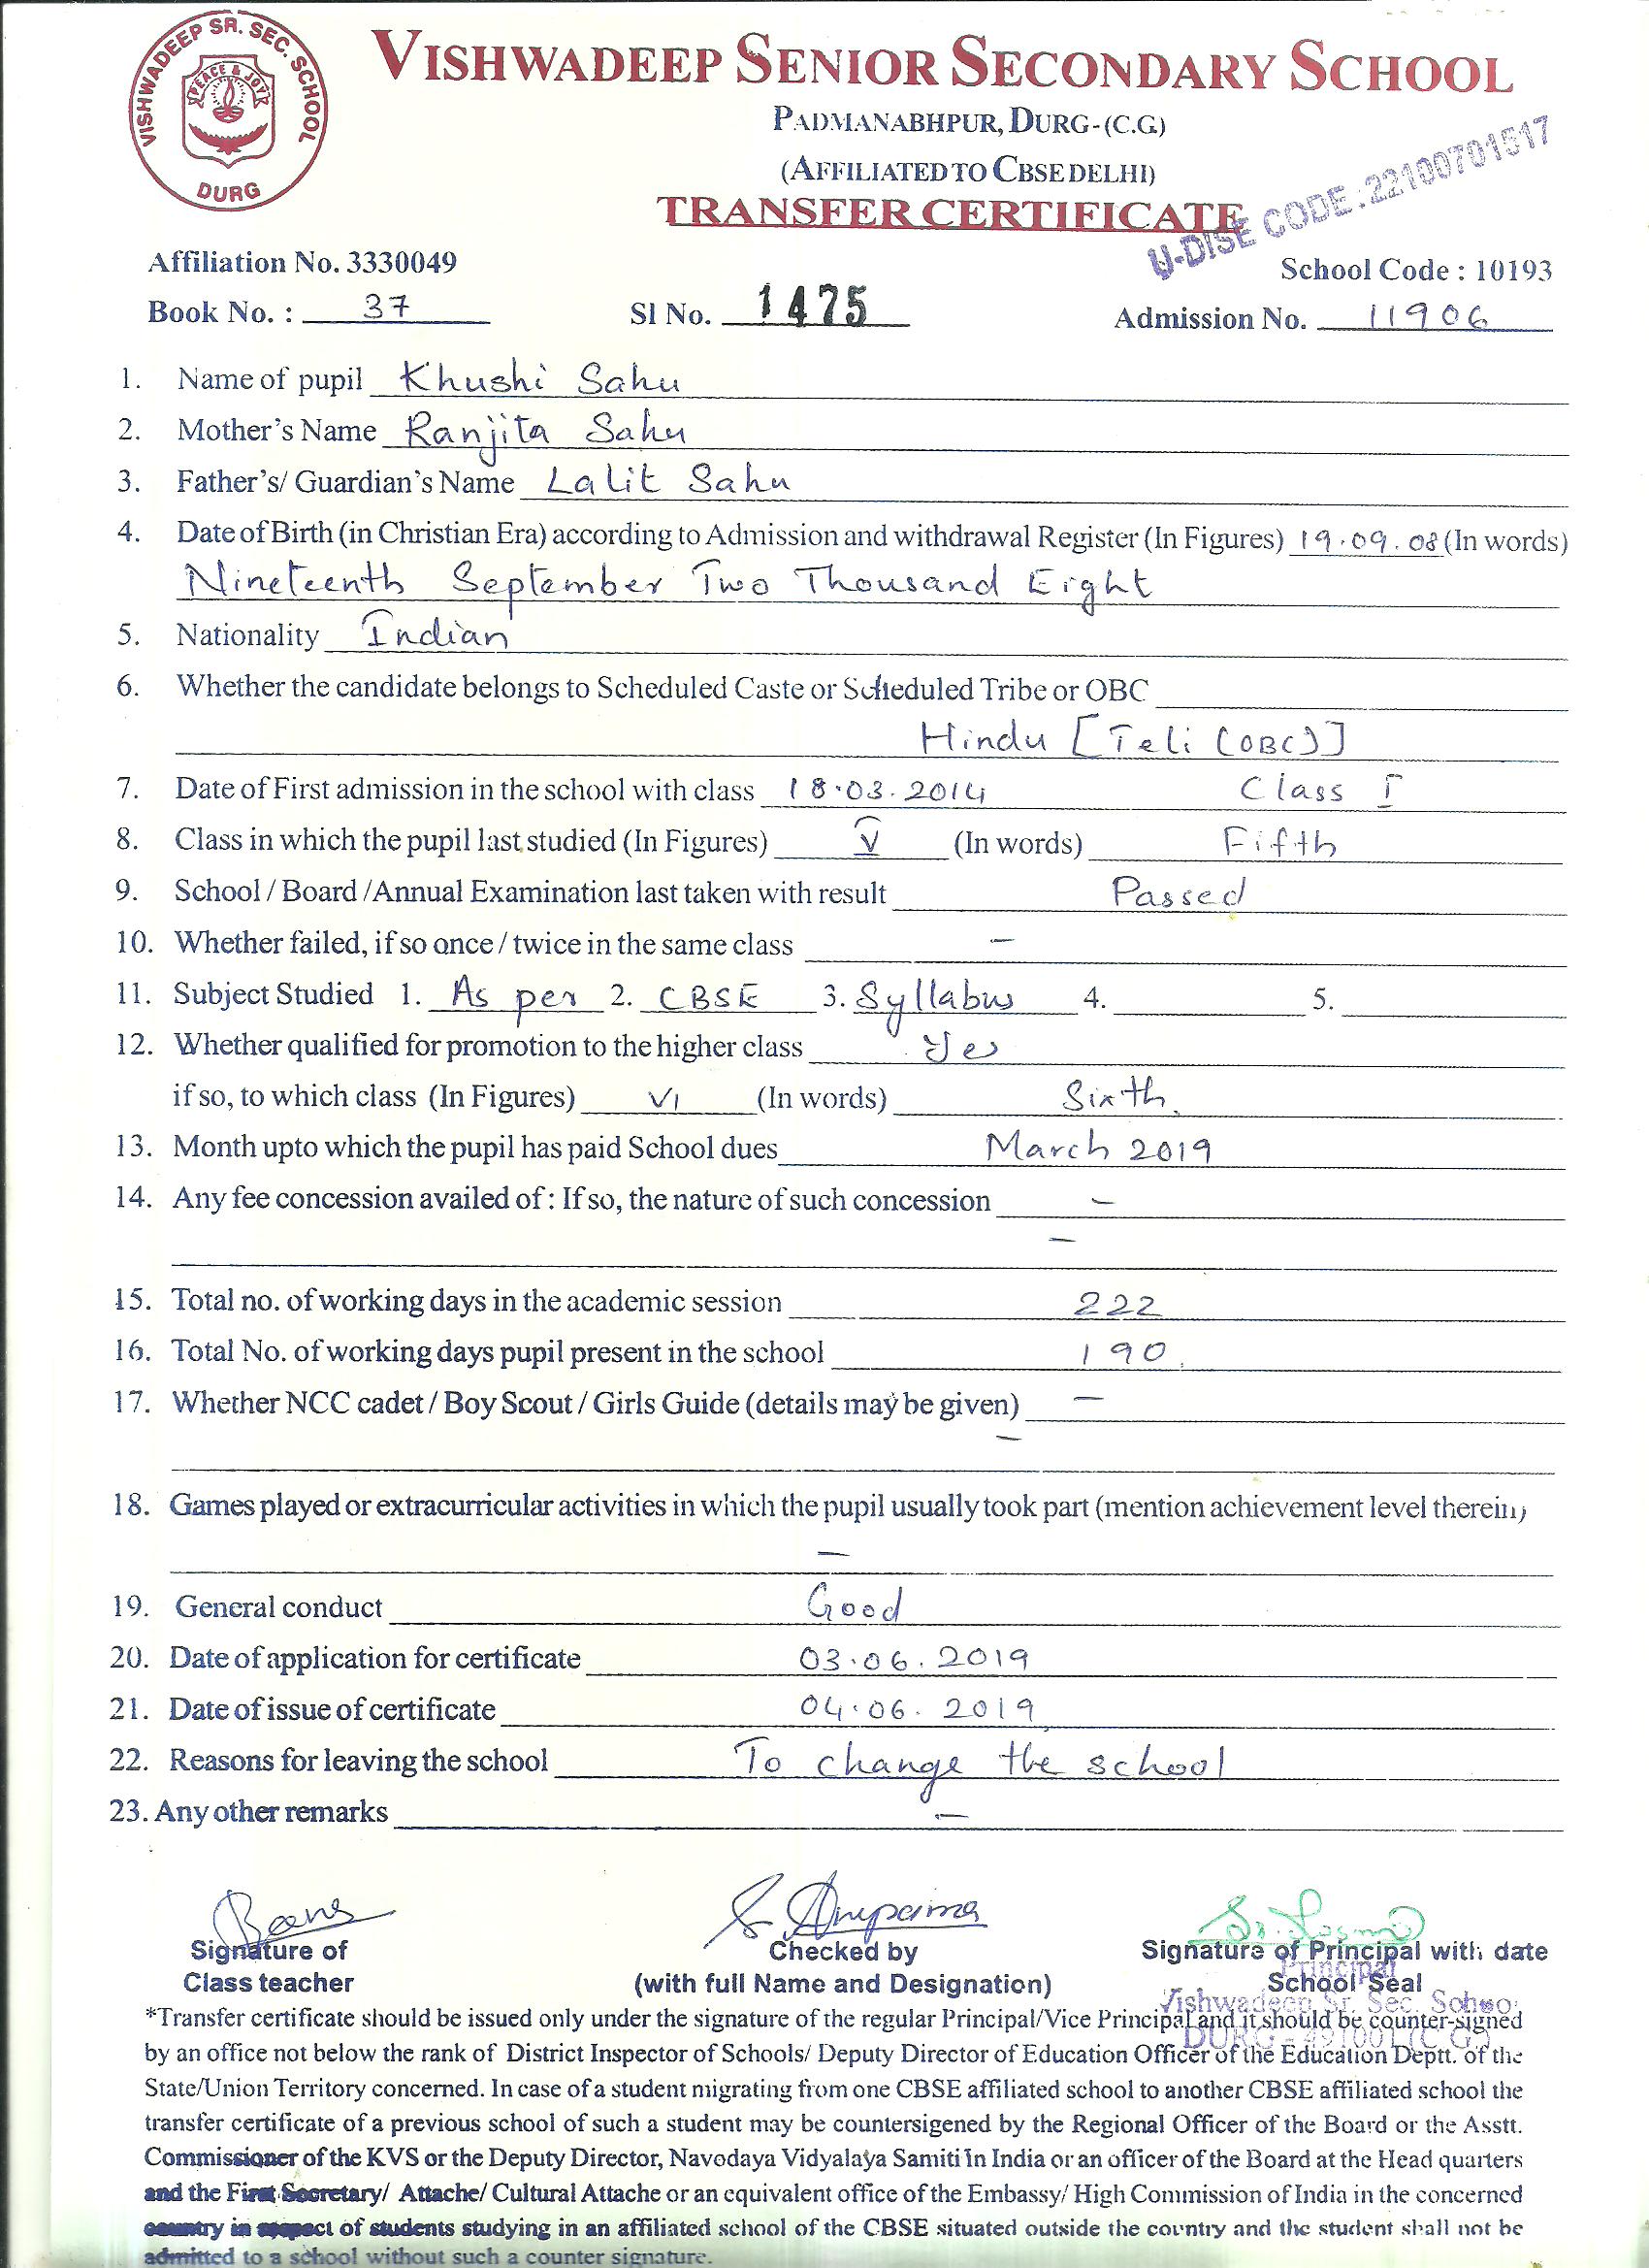 VISHWADEEP SR. SEC. SCHOOL
PEACE & JOY
DURG
VISHWADEEP SENIOR SECONDARY SCHOOL
PADMANABHPUR, DURG-(C.G.)
(AFFILIATED TO CBSE DELHI)
TRANSFER CERTIFICATE
U-DISE CODE:22100701517
Affiliation No. 3330049 School Code : 10193
Book No. : 37 Sl No. 1475 Admission No. 11906
1. Name of pupil Khushi Sahu
2. Mother's Name Ranjita Sahu
3. Father's/ Guardian's Name Lalit Sahu
4. Date of Birth (in Christian Era) according to Admission and withdrawal Register (In Figures) 19.09.08 (In words)
Nineteenth September Two Thousand Eight
5. Nationality Indian
6. Whether the candidate belongs to Scheduled Caste or Scheduled Tribe or OBC
Hindu [Teli (OBC)]
7. Date of First admission in the school with class 18.03.2014 Class I
8. Class in which the pupil last studied (In Figures) V (In words) Fifth
9. School / Board /Annual Examination last taken with result Passed
10. Whether failed, if so once / twice in the same class –
11. Subject Studied 1. As per 2. CBSE 3. Syllabus 4. 5.
12. Whether qualified for promotion to the higher class Yes
if so, to which class (In Figures) VI (In words) Sixth.
13. Month upto which the pupil has paid School dues March 2019
14. Any fee concession availed of : If so, the nature of such concession –
–
15. Total no. of working days in the academic session 222
16. Total No. of working days pupil present in the school 190.
17. Whether NCC cadet / Boy Scout / Girls Guide (details may be given) –
–
18. Games played or extracurricular activities in which the pupil usually took part (mention achievement level therein)
–
19. General conduct Good
20. Date of application for certificate 03.06.2019
21. Date of issue of certificate 04.06.2019
22. Reasons for leaving the school To change the school
23. Any other remarks –
S. Anupama
Signature of Checked by Signature of Principal with date
Class teacher (with full Name and Designation) School Seal
Principal
Vishwadeep Sr. Sec. Schoo
DURG - 491001 (C.G.)
*Transfer certificate should be issued only under the signature of the regular Principal/Vice Principal and it should be counter-signed
by an office not below the rank of District Inspector of Schools/ Deputy Director of Education Officer of the Education Deptt. of the
State/Union Territory concerned. In case of a student migrating from one CBSE affiliated school to another CBSE affiliated school the
transfer certificate of a previous school of such a student may be countersigened by the Regional Officer of the Board or the Asstt.
Commissioner of the KVS or the Deputy Director, Navodaya Vidyalaya Samiti In India or an officer of the Board at the Head quarters
and the First Secretary/ Attache/ Cultural Attache or an equivalent office of the Embassy/ High Commission of India in the concerned
country in respect of students studying in an affiliated school of the CBSE situated outside the country and the student shall not be
admitted to a school without such a counter signature.